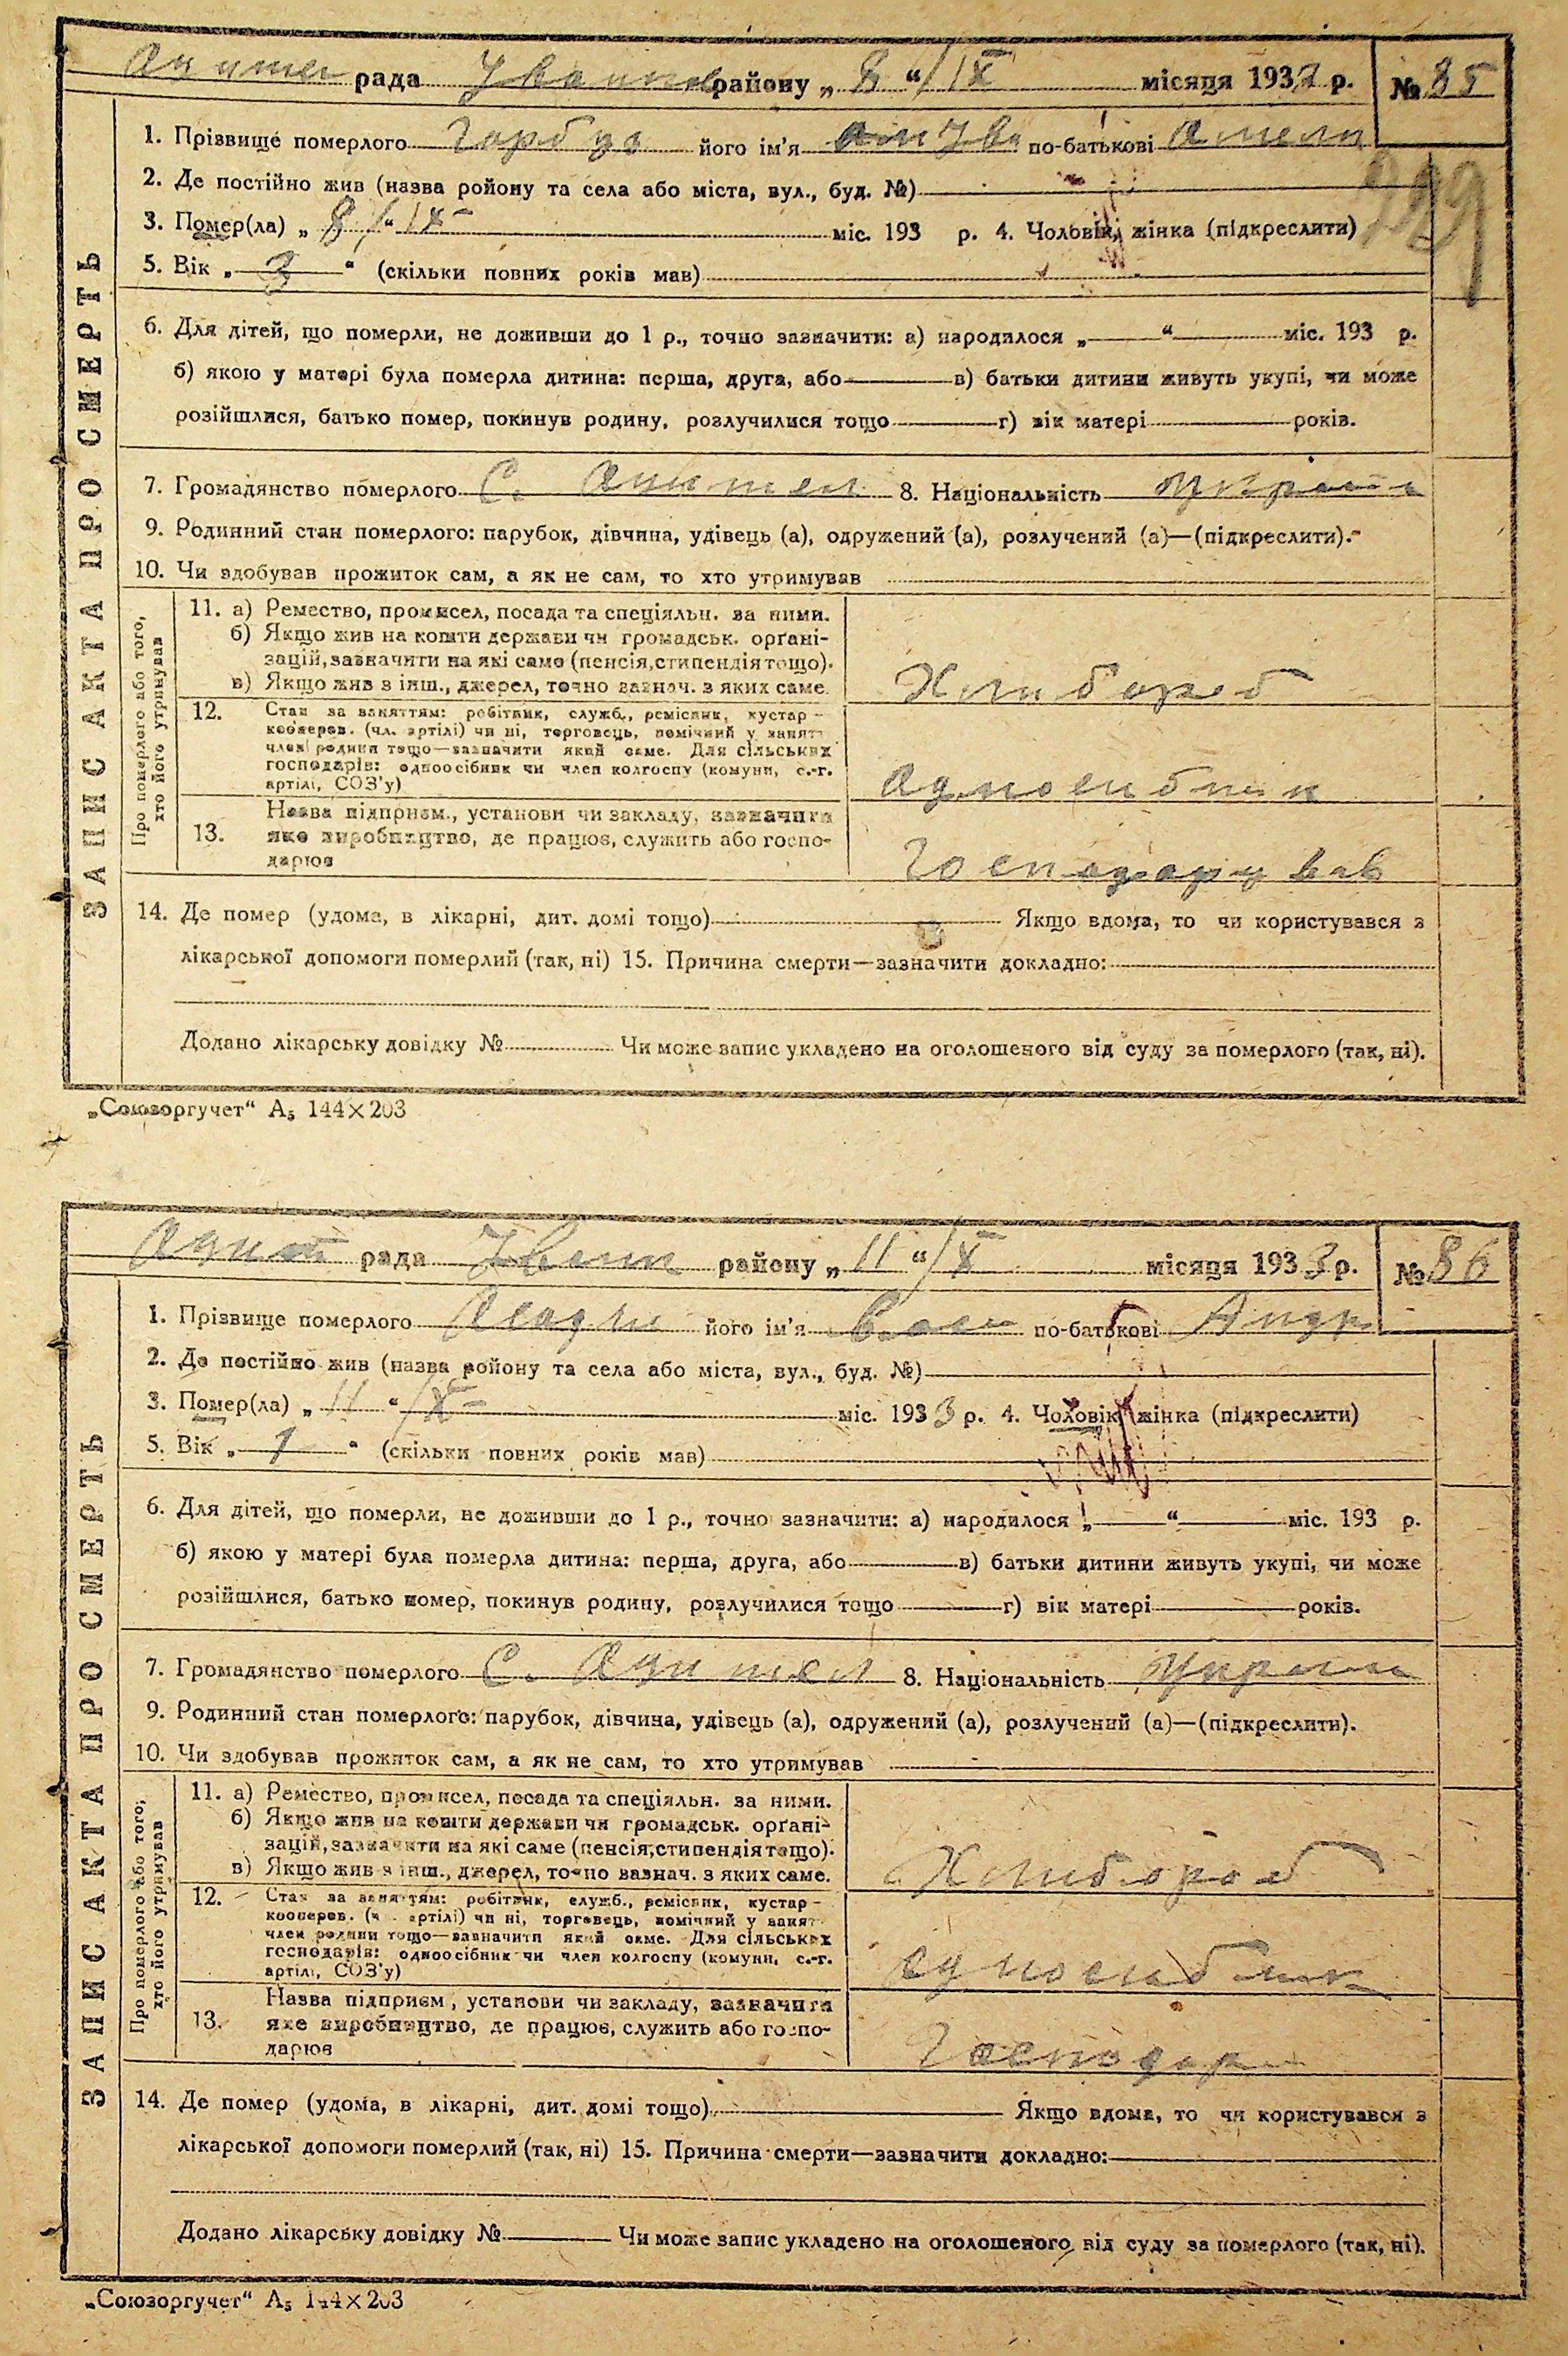 рада району „ 8 “/IX місяця 193 р. № 85
1. Прізвище померлого Горбуз його ім'я Ів по-батькові Амели
229
2. Де постійно жив (назва ройону та села або міста, вул., буд. №)
3. Помер(ла) „ 8 “ IX міс. 193 р. 4. Чоловік, жінка (підкреслити)
5. Вік „ 3 “ (скільки повних років мав)
6. Для дітей, що померли, не доживши до 1 р., точно зазначити: а) народилося „ “ міс. 193 р.
б) якою у матері була померла дитина: перша, друга, або в) батьки дитини живуть укупі, чи може
розійшлися, батько помер, покинув родину, розлучилися тощо г) вік матері років.
7. Громадянство померлого С. 8. Національність україн
9. Родинний стан померлого: парубок, дівчина, удівець (а), одружений (а), розлучений (а)—(підкреслити).
10. Чи здобував прожиток сам, а як не сам, то хто утримував
ЗАПИС АКТА ПРО СМЕРТЬ
Про померлого або того,
хто його утримував
11. а) Ремество, промисел, посада та спеціяльн. за ними.
б) Якщо жив на кошти держави чи громадськ. орґані-
зацій, зазначити на які саме (пенсія, стипендія тощо).
в) Якщо жив з інш., джерел, точно зазнач. з яких саме.
Хлибороб
12. Стан за заняттям: робітник, служб., ремісник, кустар -
кооперов. (чл. артілі) чи ні, торговець, помічний у занят
член родини тощо—зазначити який саме. Для сільських
господарів: одноосібник чи член колгоспу (комуни, с.-г.
артілі, СОЗ'у)
одноосибник
13. Назва підприєм., установи чи закладу, зазначити
яке виробництво, де працює, служить або госпо-
дарює
Господарував
14. Де помер (удома, в лікарні, дит. домі тощо) Якщо вдома, то чи користувався з
лікарської допомоги померлий (так, ні) 15. Причина смерти—зазначити докладно:
Додано лікарську довідку № Чи може запис укладено на оголошеного від суду за померлого (так, ні).
„Союзоргучет“ А5 144×203
рада району „ 11 “/X місяця 1933 р. № 86
1. Прізвище померлого його ім'я по-батькові Андр
2. Де постійно жив (назва ройону та села або міста, вул., буд. №)
3. Помер(ла) „ 11 “/X міс. 1933 р. 4. Чоловік, жінка (підкреслити)
5. Вік „ 1 “ (скільки повних років мав)
6. Для дітей, що померли, не доживши до 1 р., точно зазначити: а) народилося „ “ міс. 193 р.
б) якою у матері була померла дитина: перша, друга, або в) батьки дитини живуть укупі, чи може
розійшлися, батько помер, покинув родину, розлучилися тощо г) вік матері років.
7. Громадянство померлого С. 8. Національність україн
9. Родинний стан померлого: парубок, дівчина, удівець (а), одружений (а), розлучений (а)—(підкреслити).
10. Чи здобував прожиток сам, а як не сам, то хто утримував
ЗАПИС АКТА ПРО СМЕРТЬ
Про померлого або того,
хто його утримував
11. а) Ремество, промисел, посада та спеціяльн. за ними.
б) Якщо жив на кошти держави чи громадськ. орґані-
зацій, зазначити на які саме (пенсія, стипендія тощо).
в) Якщо жив з інш., джерел, точно зазнач. з яких саме.
Хлибороб
12. Стан за заняттям: робітник, служб., ремісник, кустар -
кооперов. (ч артілі) чи ні, торговець, помічний у занят
член родини тощо—зазначити який саме. Для сільських
господарів: одноосібник чи член колгоспу (комуни, с.-г.
артілі, СОЗ'у)
одноосибник
13. Назва підприєм, установи чи закладу, зазначити
яке виробництво, де працює, служить або госпо-
дарює
Господари
14. Де помер (удома, в лікарні, дит. домі тощо) Якщо вдома, то чи користувався з
лікарської допомоги померлий (так, ні) 15. Причина смерти—зазначити докладно:
Додано лікарську довідку № Чи може запис укладено на оголошеного від суду за померлого (так, ні).
„Союзоргучет“ А5 144×203